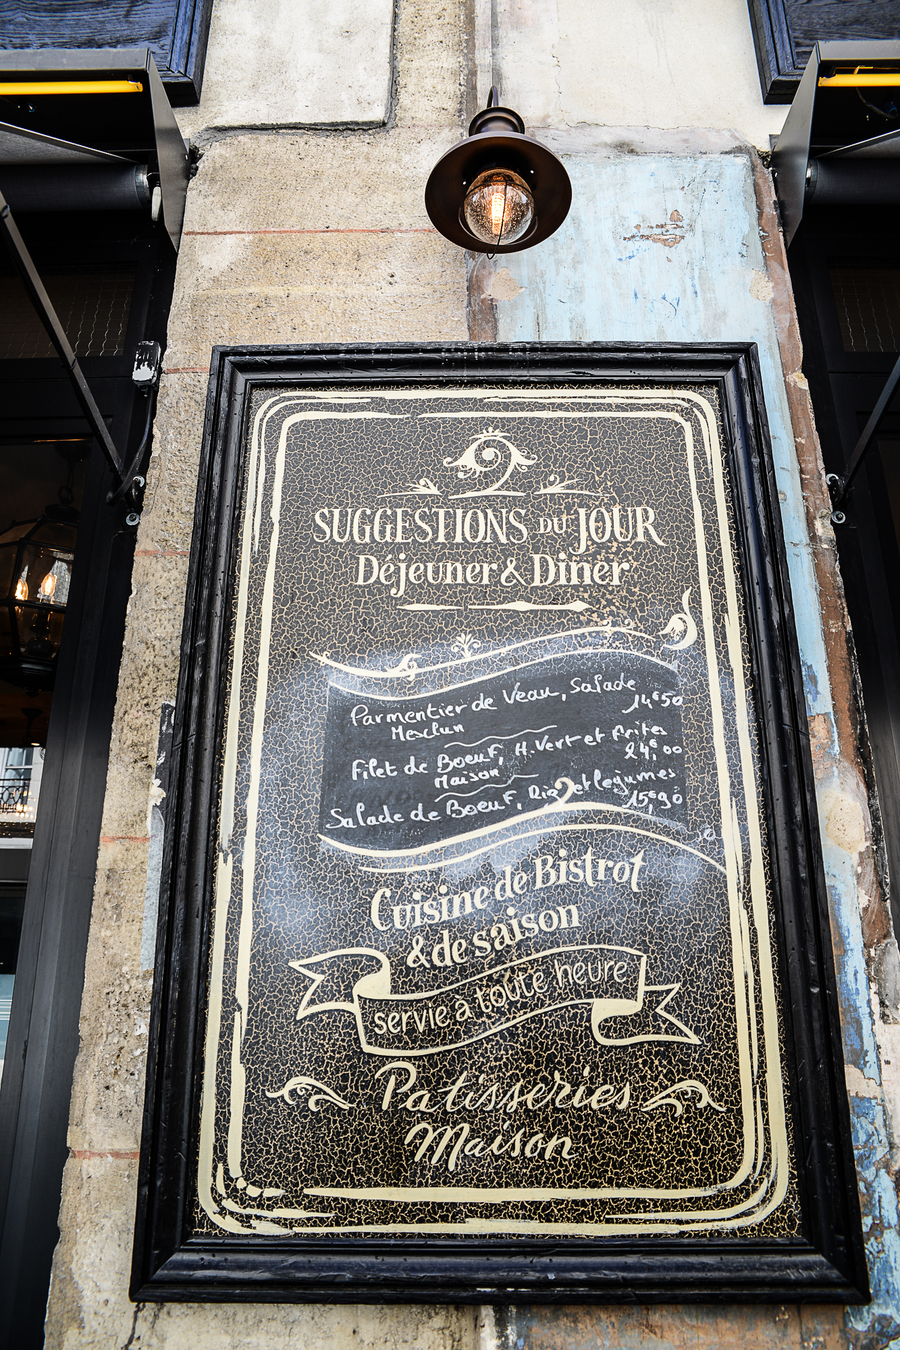 SUGGESTIONS DU JOUR
Déjeuner & Dîner
Parmentier de Veau, Salade
Mesclun 14€50
Filet de Boeuf, H.Vert et Frites
Maison 24€00
Salade de Boeuf, Riz et legumes
15€90
Cuisine de Bistrot
& de saison
servie à toute heure
Patisseries
Maison